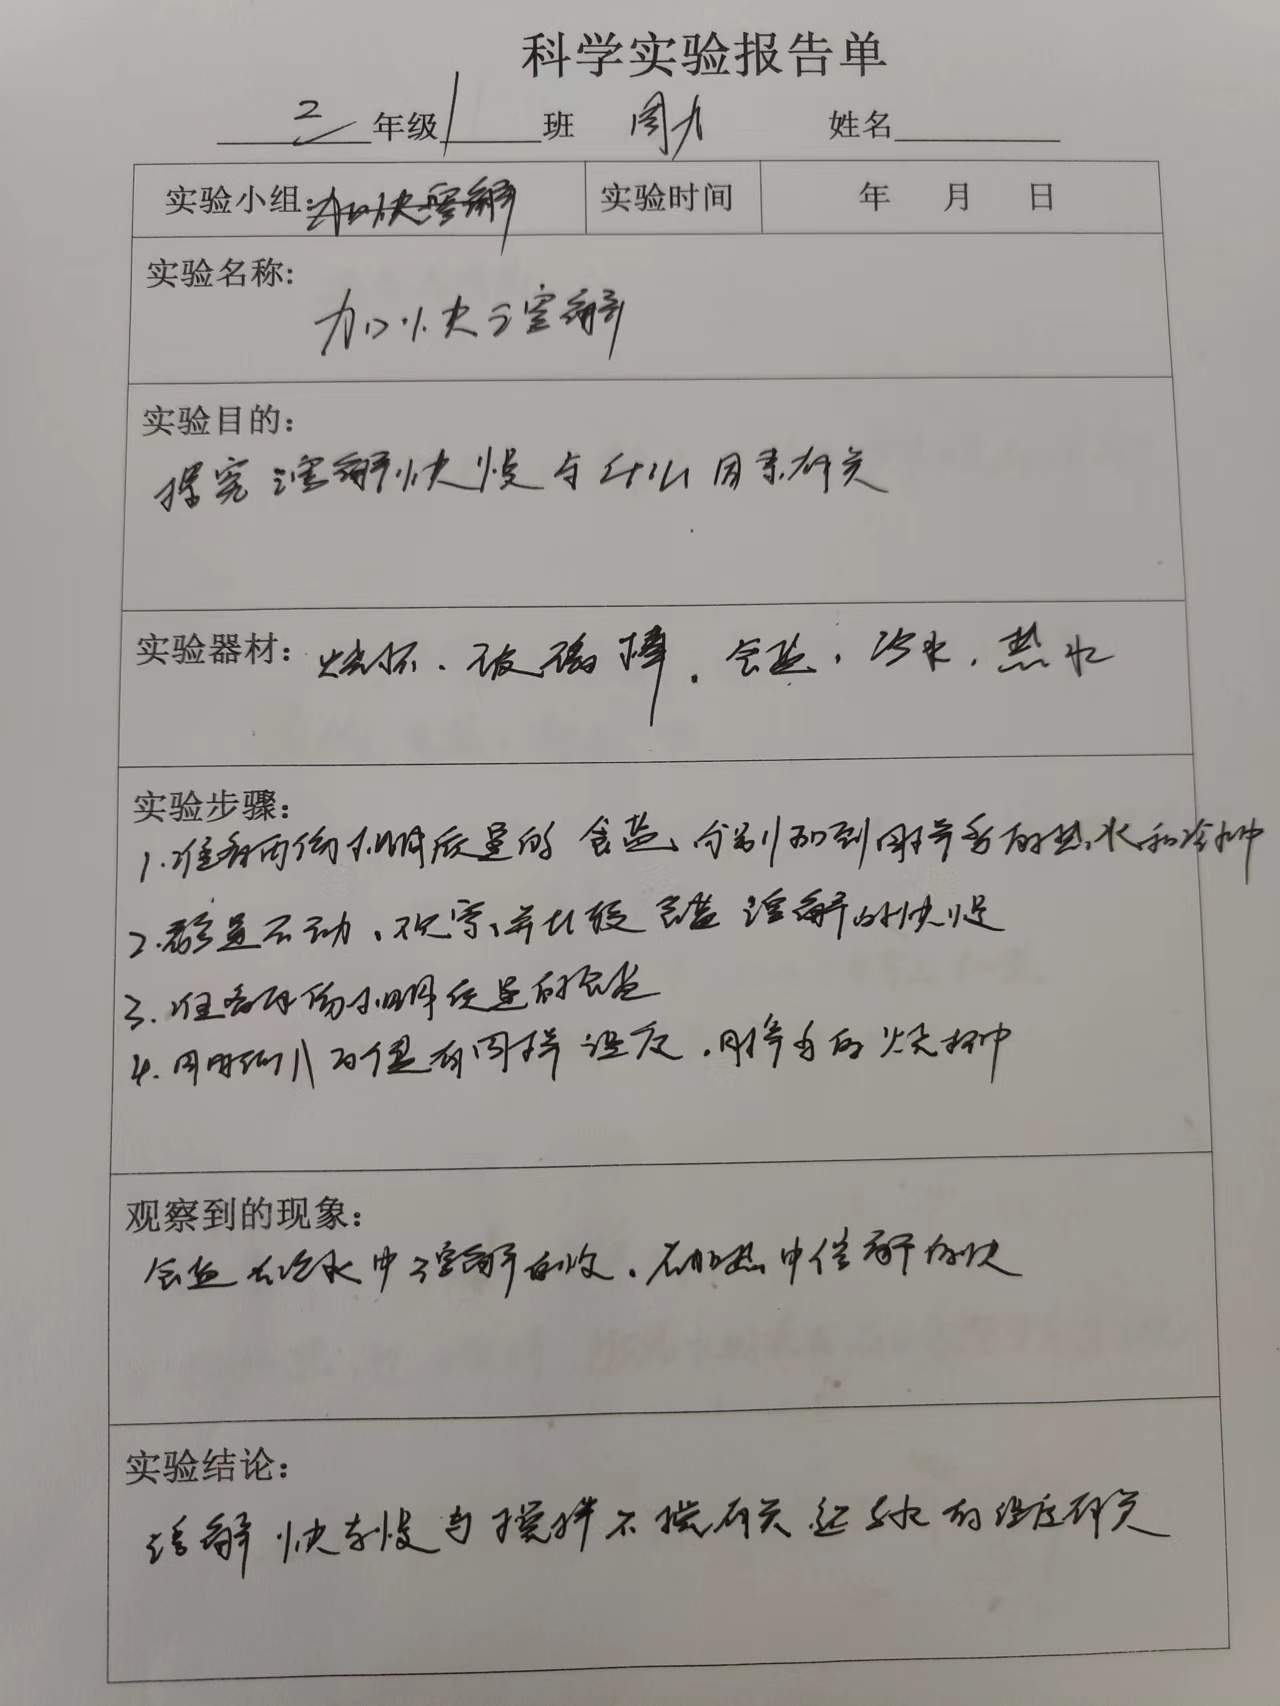 科学实验报告单
2 年级 1 班 周力 姓名
实验小组: 加快溶解 实验时间 年 月 日
实验名称:
加快溶解
实验目的:
探究溶解快慢与什么因素有关
实验器材: 烧杯、玻璃棒、食盐、冷水、热水
实验步骤:
1.准备两份相同质量的食盐、分别加到同样多的热水和冷水中
2.静置不动、观察、并比较食盐溶解的快慢
3.准备两份相同质量的食盐
4. 有同样温度、同样多的烧杯中
观察到的现象:
食盐在冷水中溶解的 、在 热中 解的快
实验结论:
溶解快 慢与搅拌不搅有关 还与水的温度有关